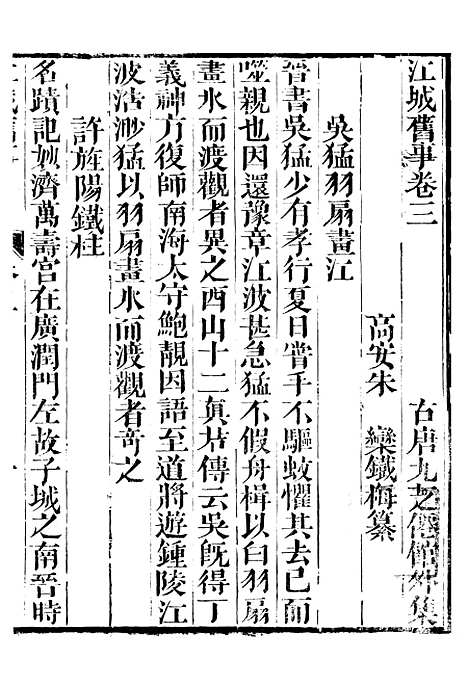 江城舊事卷三　古唐九芝僊館外集
高安朱　欒鐵梅纂
吳猛羽扇畫江
晉書吳猛少有孝行夏日嘗手不驅蚊懼其去已而
噬親也因還豫章江波甚急猛不假舟楫以白羽扇
畫水而渡觀者異之西山十二眞君傳云吳旣得丁
義神方復師南海太守鮑靚因語至道將遊鍾陵江
波浩渺猛以羽扇畫水而渡觀者奇之
許旌陽鐵柱
名蹟記妙濟萬壽宮在廣潤門左故子城之南晉時